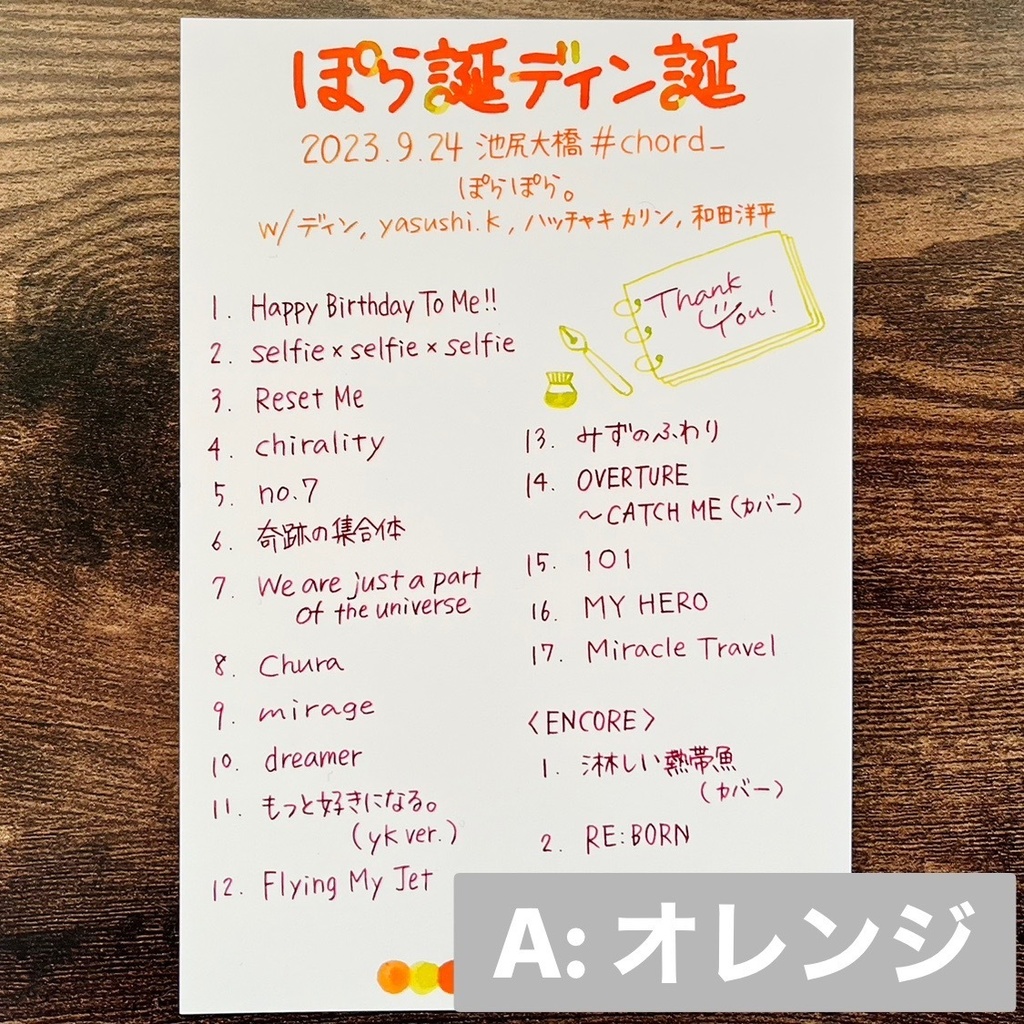 ぽら誕ディン誕
2023.9.24 池尻大橋 #chord_
ぽらぽら。
w/ ディン, yasushi.k, ハッチャキカリン, 和田洋平
Thank
You!
1. Happy Birthday To Me!!
2. selfie×selfie×selfie
3. Reset Me
4. chirality
5. no.7
6. 奇跡の集合体
7. We are just a part
of the universe
8. Chura
9. mirage
10. dreamer
11. もっと好きになる。
(yk ver.)
12. Flying My Jet
13. みずのふわり
14. OVERTURE
~CATCH ME (カバー)
15. 101
16. MY HERO
17. Miracle Travel
<ENCORE>
1. 淋しい熱帯魚
(カバー)
2. RE:BORN
A: オレンジ